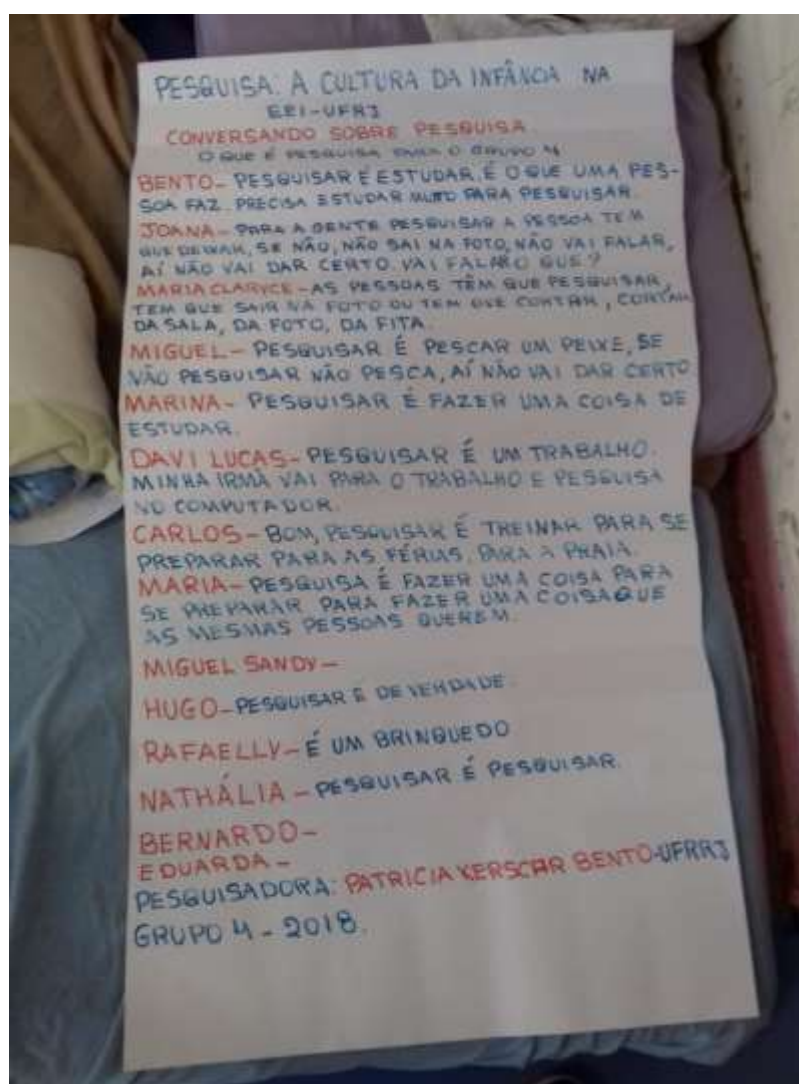 PESQUISA: A CULTURA DA INFÂNCIA NA
EEI-UFRJ
CONVERSANDO SOBRE PESQUISA
O QUE É PESQUISA PARA O GRUPO 4
BENTO- PESQUISAR É ESTUDAR. É O QUE UMA PES-
SOA FAZ. PRECISA ESTUDAR MUITO PARA PESQUISAR.
JOANA- PARA A GENTE PESQUISAR A PESSOA TEM
QUE DEIXAR, SE NÃO, NÃO SAI NA FOTO, NÃO VAI FALAR,
AÍ NÃO VAI DAR CERTO. VAI FALAR O QUE?
MARIA CLARYCE- AS PESSOAS TÊM QUE PESQUISAR,
TEM QUE SAIR NA FOTO OU TEM QUE CONTAR, CONTAR
DA SALA, DA FOTO, DA FITA.
MIGUEL- PESQUISAR É PESCAR UM PEIXE, SE
NÃO PESQUISAR NÃO PESCA, AÍ NÃO VAI DAR CERTO
MARINA- PESQUISAR É FAZER UMA COISA DE
ESTUDAR.
DAVI LUCAS- PESQUISAR É UM TRABALHO.
MINHA IRMÃ VAI PARA O TRABALHO E PESQUISA
NO COMPUTADOR.
CARLOS- BOM, PESQUISAR É TREINAR PARA SE
PREPARAR PARA AS FÉRIAS, PARA A PRAIA.
MARIA- PESQUISA É FAZER UMA COISA PARA
SE PREPARAR PARA FAZER UMA COISA QUE
AS MESMAS PESSOAS QUEREM.
MIGUEL SANDY-
HUGO- PESQUISAR É DE VERDADE.
RAFAELLY- É UM BRINQUEDO
NATHÁLIA- PESQUISAR É PESQUISAR.
BERNARDO-
EDUARDA-
PESQUISADORA: PATRICIA KERSCHR BENTO-UFRRJ
GRUPO 4- 2018.